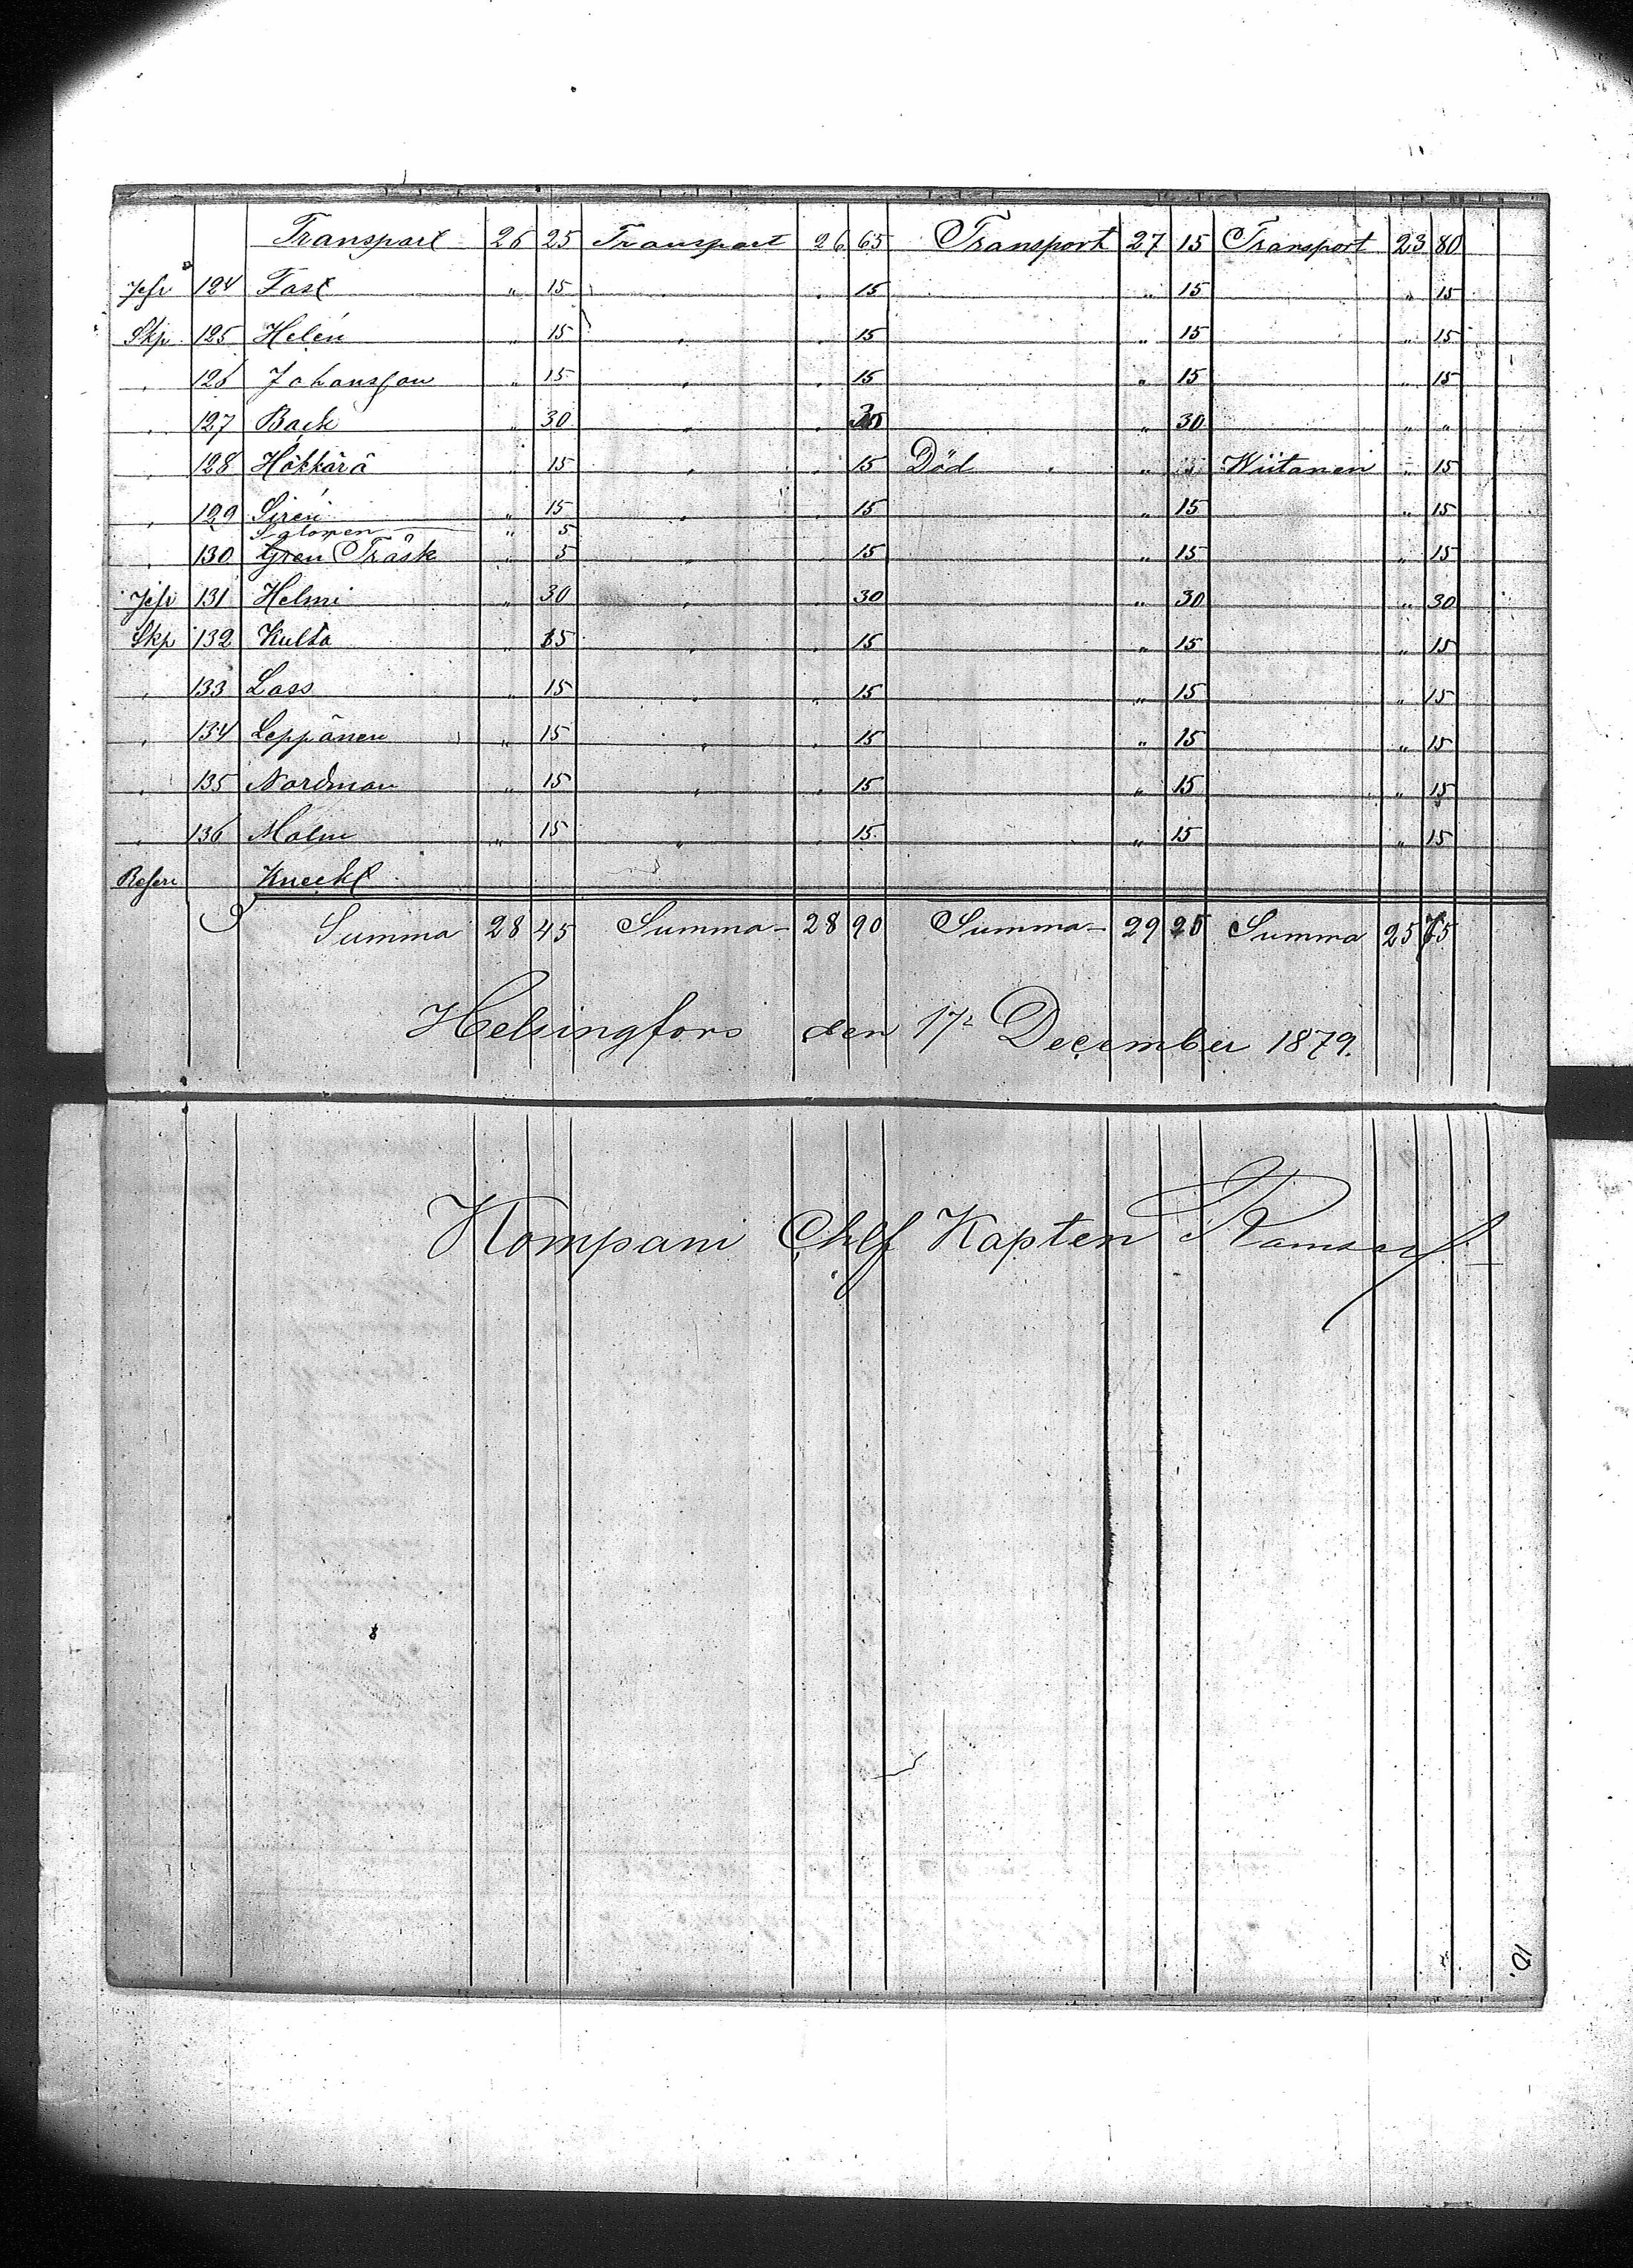 Transport 26 25 Transport 26 65 Transport 27 15 Transport 23 80
124 Fast " 15 " 15 " 15 " 15
Skp 125 Helén " 15 " " 15 " 15 " 15
" 126 Johansson " 15 " " 15 " 15 " 15
" 127 Back " 30 " " 30 " 30 " "
" 128 Häkkärä " 15 " " 15 Död " Wiitanen " 15
" 129 Sirén " 15 " " 15 " 15 " 15
Salonen " 5
" 130 Gren Träsk " 5 " " 15 " 15 " 15
131 Helmi " 30 " " 30 " 30 " 30
Skp 132 Kulta " 15 " " 15 " 15 " 15
" 133 Lass " 15 " " 15 " 15 " 15
" 134 Leppänen " 15 " " 15 " 15 " 15
" 135 Nordman " 15 " " 15 " 15 " 15
" 136 Malm " 15 " " 15 " 15 " 15
Kneckt
Summa 28 45 Summa 28 90 Summa 29 25 Summa 25 75
Helsingfors den 17 December 1879.
Kompani Chef Kapten Ramsay
10.